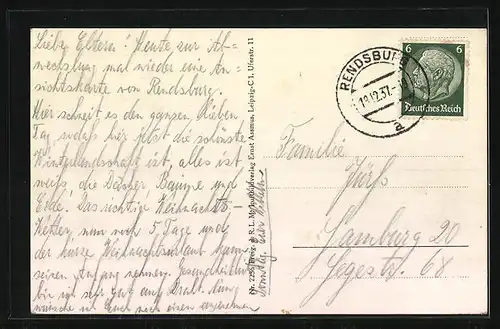 Liebe Eltern! Heute zur Ab=
wechslung mal wieder eine An=
sichtskarte von Rendsburg.
Hier schneit es den ganzen lieben
Tag, sodass hier jetzt die schönste
Winterlandschaft ist, alles ist
weiß, die Dächer, Bäume und
Erde. Das richtige Weihnachts-
Wetter, nun noch 5 Tage und
der kurze Weihnachtsurlaub kann
seinen Anfang nehmen. Gesundheitlich
bin ich sehr gut auf Draht
wünsche ich Euch noch einen angenehmen
Sonntag. Euer
Verlag Ernst Asmus, Leipzig-C 1, Uferstr. 11
RENDSBURG
19.12.37
a
6 6
Deutsches Reich
Familie
Jürß
Hamburg 20
68